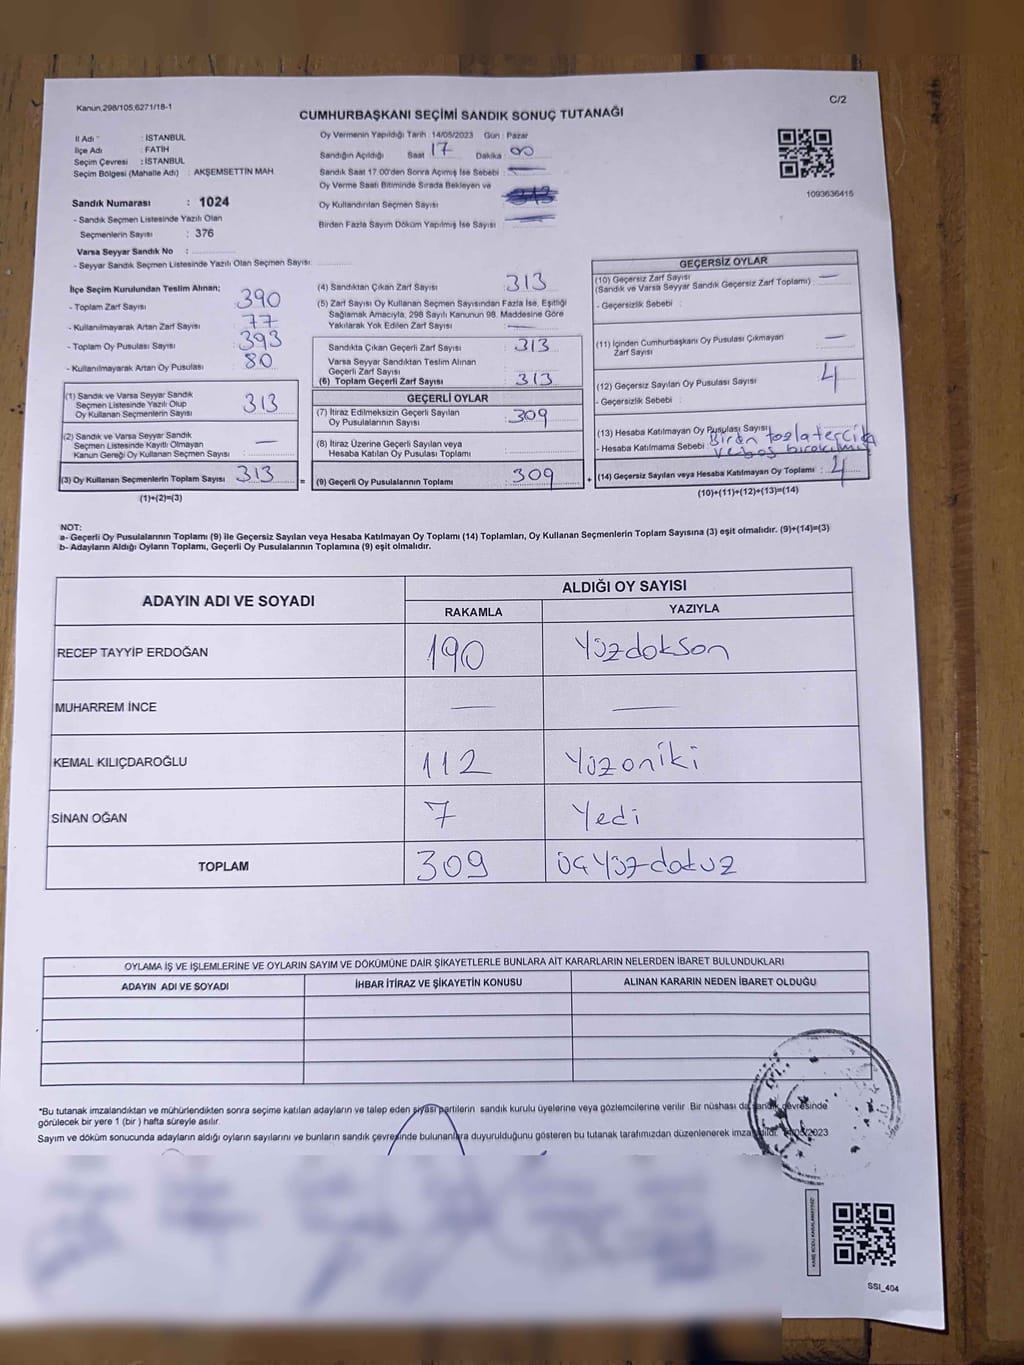 Kanun,298/105,6271/18-1
C/2
CUMHURBAŞKANI SEÇİMİ SANDIK SONUÇ TUTANAĞI
İl Adı : İSTANBUL
İlçe Adı : FATİH
Seçim Çevresi : İSTANBUL
Seçim Bölgesi (Mahalle Adı) : AKŞEMSETTİN MAH.
Sandık Numarası : 1024
- Sandık Seçmen Listesinde Yazılı Olan
Seçmenlerin Sayısı : 376
Varsa Seyyar Sandık No :
- Seyyar Sandık Seçmen Listesinde Yazılı Olan Seçmen Sayısı:
Oy Vermenin Yapıldığı Tarih : 14/05/2023 Gün : Pazar
Sandığın Açıldığı Saat 17 Dakika 00
Sandık Saat 17:00'den Sonra Açımış İse Sebebi : —
Oy Verme Saati Bitiminde Sırada Bekleyen ve
Oy Kullandırılan Seçmen Sayısı
Birden Fazla Sayım Döküm Yapılmış İse Sayısı : —
1093636415
İlçe Seçim Kurulundan Teslim Alınan;
- Toplam Zarf Sayısı : 390
- Kullanılmayarak Artan Zarf Sayısı : 77
- Toplam Oy Pusulası Sayısı : 393
- Kullanılmayarak Artan Oy Pusulası : 80
(1) Sandık ve Varsa Seyyar Sandık
Seçmen Listesinde Yazılı Olup
Oy Kullanan Seçmenlerin Sayısı : 313
(2) Sandık ve Varsa Seyyar Sandık
Seçmen Listesinde Kayıtlı Olmayan
Kanun Gereği Oy Kullanan Seçmen Sayısı : —
(3) Oy Kullanan Seçmenlerin Toplam Sayısı : 313 =
(1)+(2)=(3)
(4) Sandıktan Çıkan Zarf Sayısı : 313
(5) Zarf Sayısı Oy Kullanan Seçmen Sayısından Fazla İse, Eşitliği
Sağlamak Amacıyla, 298 Sayılı Kanunun 98. Maddesine Göre
Yakılarak Yok Edilen Zarf Sayısı : —
Sandıkta Çıkan Geçerli Zarf Sayısı : 313
Varsa Seyyar Sandıktan Teslim Alınan
Geçerli Zarf Sayısı :
(6) Toplam Geçerli Zarf Sayısı : 313
GEÇERLİ OYLAR
(7) İtiraz Edilmeksizin Geçerli Sayılan
Oy Pusulasının Sayısı : 309
(8) İtiraz Üzerine Geçerli Sayılan veya
Hesaba Katılan Oy Pusulası Toplamı :
(9) Geçerli Oy Pusulalarının Toplamı : 309 +
GEÇERSİZ OYLAR
(10) Geçersiz Zarf Sayısı
(Sandık ve Varsa Seyyar Sandık Geçersiz Zarf Toplamı) : —
- Geçersizlik Sebebi :
(11) İçinden Cumhurbaşkanı Oy Pusulası Çıkmayan
Zarf Sayısı : —
(12) Geçersiz Sayılan Oy Pusulası Sayısı : 4
- Geçersizlik Sebebi :
(13) Hesaba Katılmayan Oy Pusulası Sayısı
- Hesaba Katılmama Sebebi : Birden fazla tercih
ve boş bırakılmış
(14) Geçersiz Sayılan veya Hesaba Katılmayan Oy Toplamı : 4
(10)+(11)+(12)+(13)=(14)
NOT:
a- Geçerli Oy Pusulalarının Toplamı (9) ile Geçersiz Sayılan veya Hesaba Katılmayan Oy Toplamı (14) Toplamları, Oy Kullanan Seçmenlerin Toplam Sayısına (3) eşit olmalıdır. (9)+(14)=(3)
b- Adayların Aldığı Oyların Toplamı, Geçerli Oy Pusulalarının Toplamına (9) eşit olmalıdır.
ADAYIN ADI VE SOYADI ALDIĞI OY SAYISI
RAKAMLA YAZIYLA
RECEP TAYYİP ERDOĞAN 190 Yüzdokson
MUHARREM İNCE — —
KEMAL KILIÇDAROĞLU 112 Yüzoniki
SİNAN OĞAN 7 Yedi
TOPLAM 309 üçyüzdokuz
OYLAMA İŞ VE İŞLEMLERİNE VE OYLARIN SAYIM VE DÖKÜMÜNE DAİR ŞİKAYETLERLE BUNLARA AİT KARARLARIN NELERDEN İBARET BULUNDUKLARI
ADAYIN ADI VE SOYADI İHBAR İTİRAZ VE ŞİKAYETİN KONUSU ALINAN KARARIN NEDEN İBARET OLDUĞU
*Bu tutanak imzalandıktan ve mühürlendikten sonra seçime katılan adayların ve talep eden siyasi partilerin sandık kurulu üyelerine veya gözlemcilerine verilir. Bir nüshası da sandık çevresinde
görülecek bir yere 1 (bir ) hafta süreyle asılır.
Sayım ve döküm sonucunda adayların aldığı oyların sayılarını ve bunların sandık çevresinde bulunanlara duyurulduğunu gösteren bu tutanak tarafımızdan düzenlenerek
SSI_404